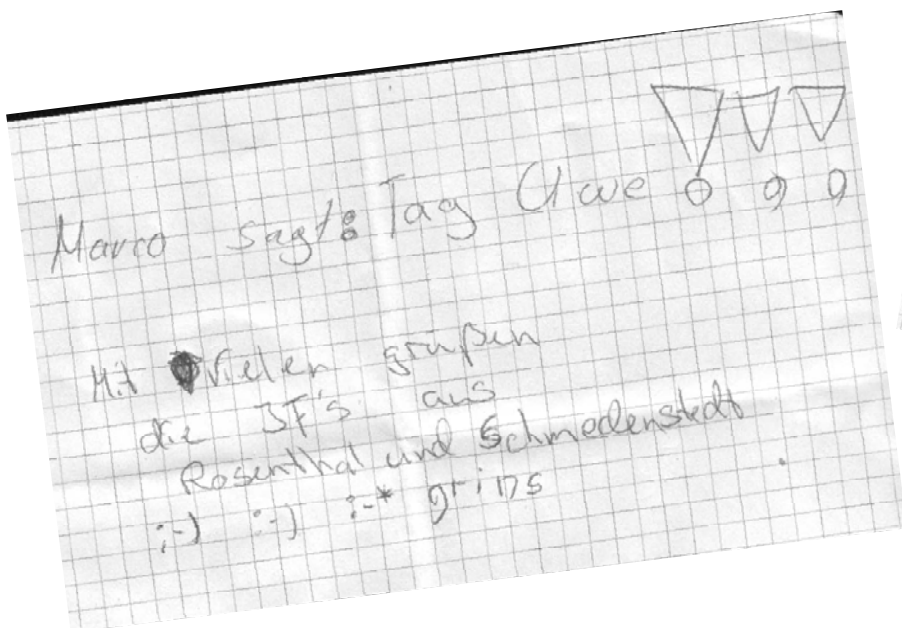 Marco sagt: Tag Uwe !!!
Mit Vielen grüßen
die JF's aus
Rosenthal und Schmedenstedt
;-) :-) :-* grins